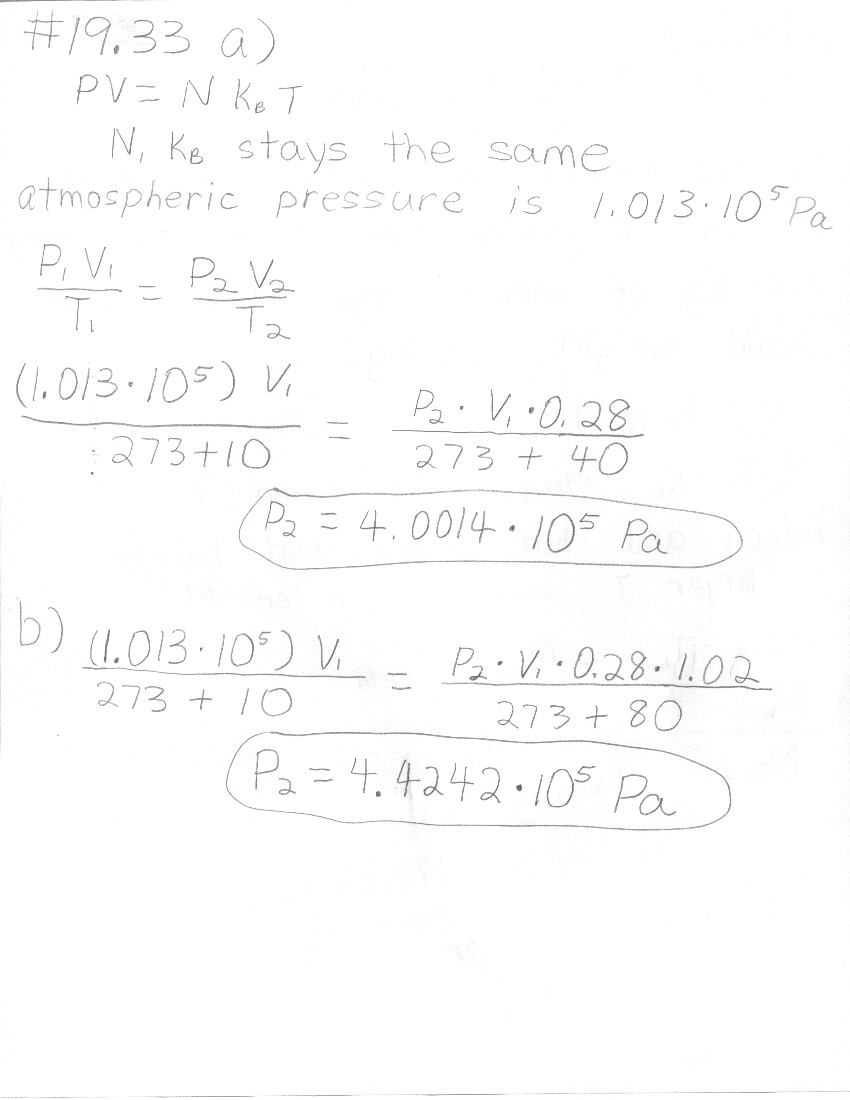 #19.33 a)
PV = N K_B T
N, K_B stays the same
atmospheric pressure is 1.013·10⁵ Pa
P₁ V₁ / T₁ = P₂ V₂ / T₂
(1.013·10⁵) V₁ / 273+10 = P₂ · V₁ · 0.28 / 273 + 40
P₂ = 4.0014·10⁵ Pa
b) (1.013·10⁵) V₁ / 273 + 10 = P₂ · V₁ · 0.28 · 1.02 / 273 + 80
P₂ = 4.4242·10⁵ Pa